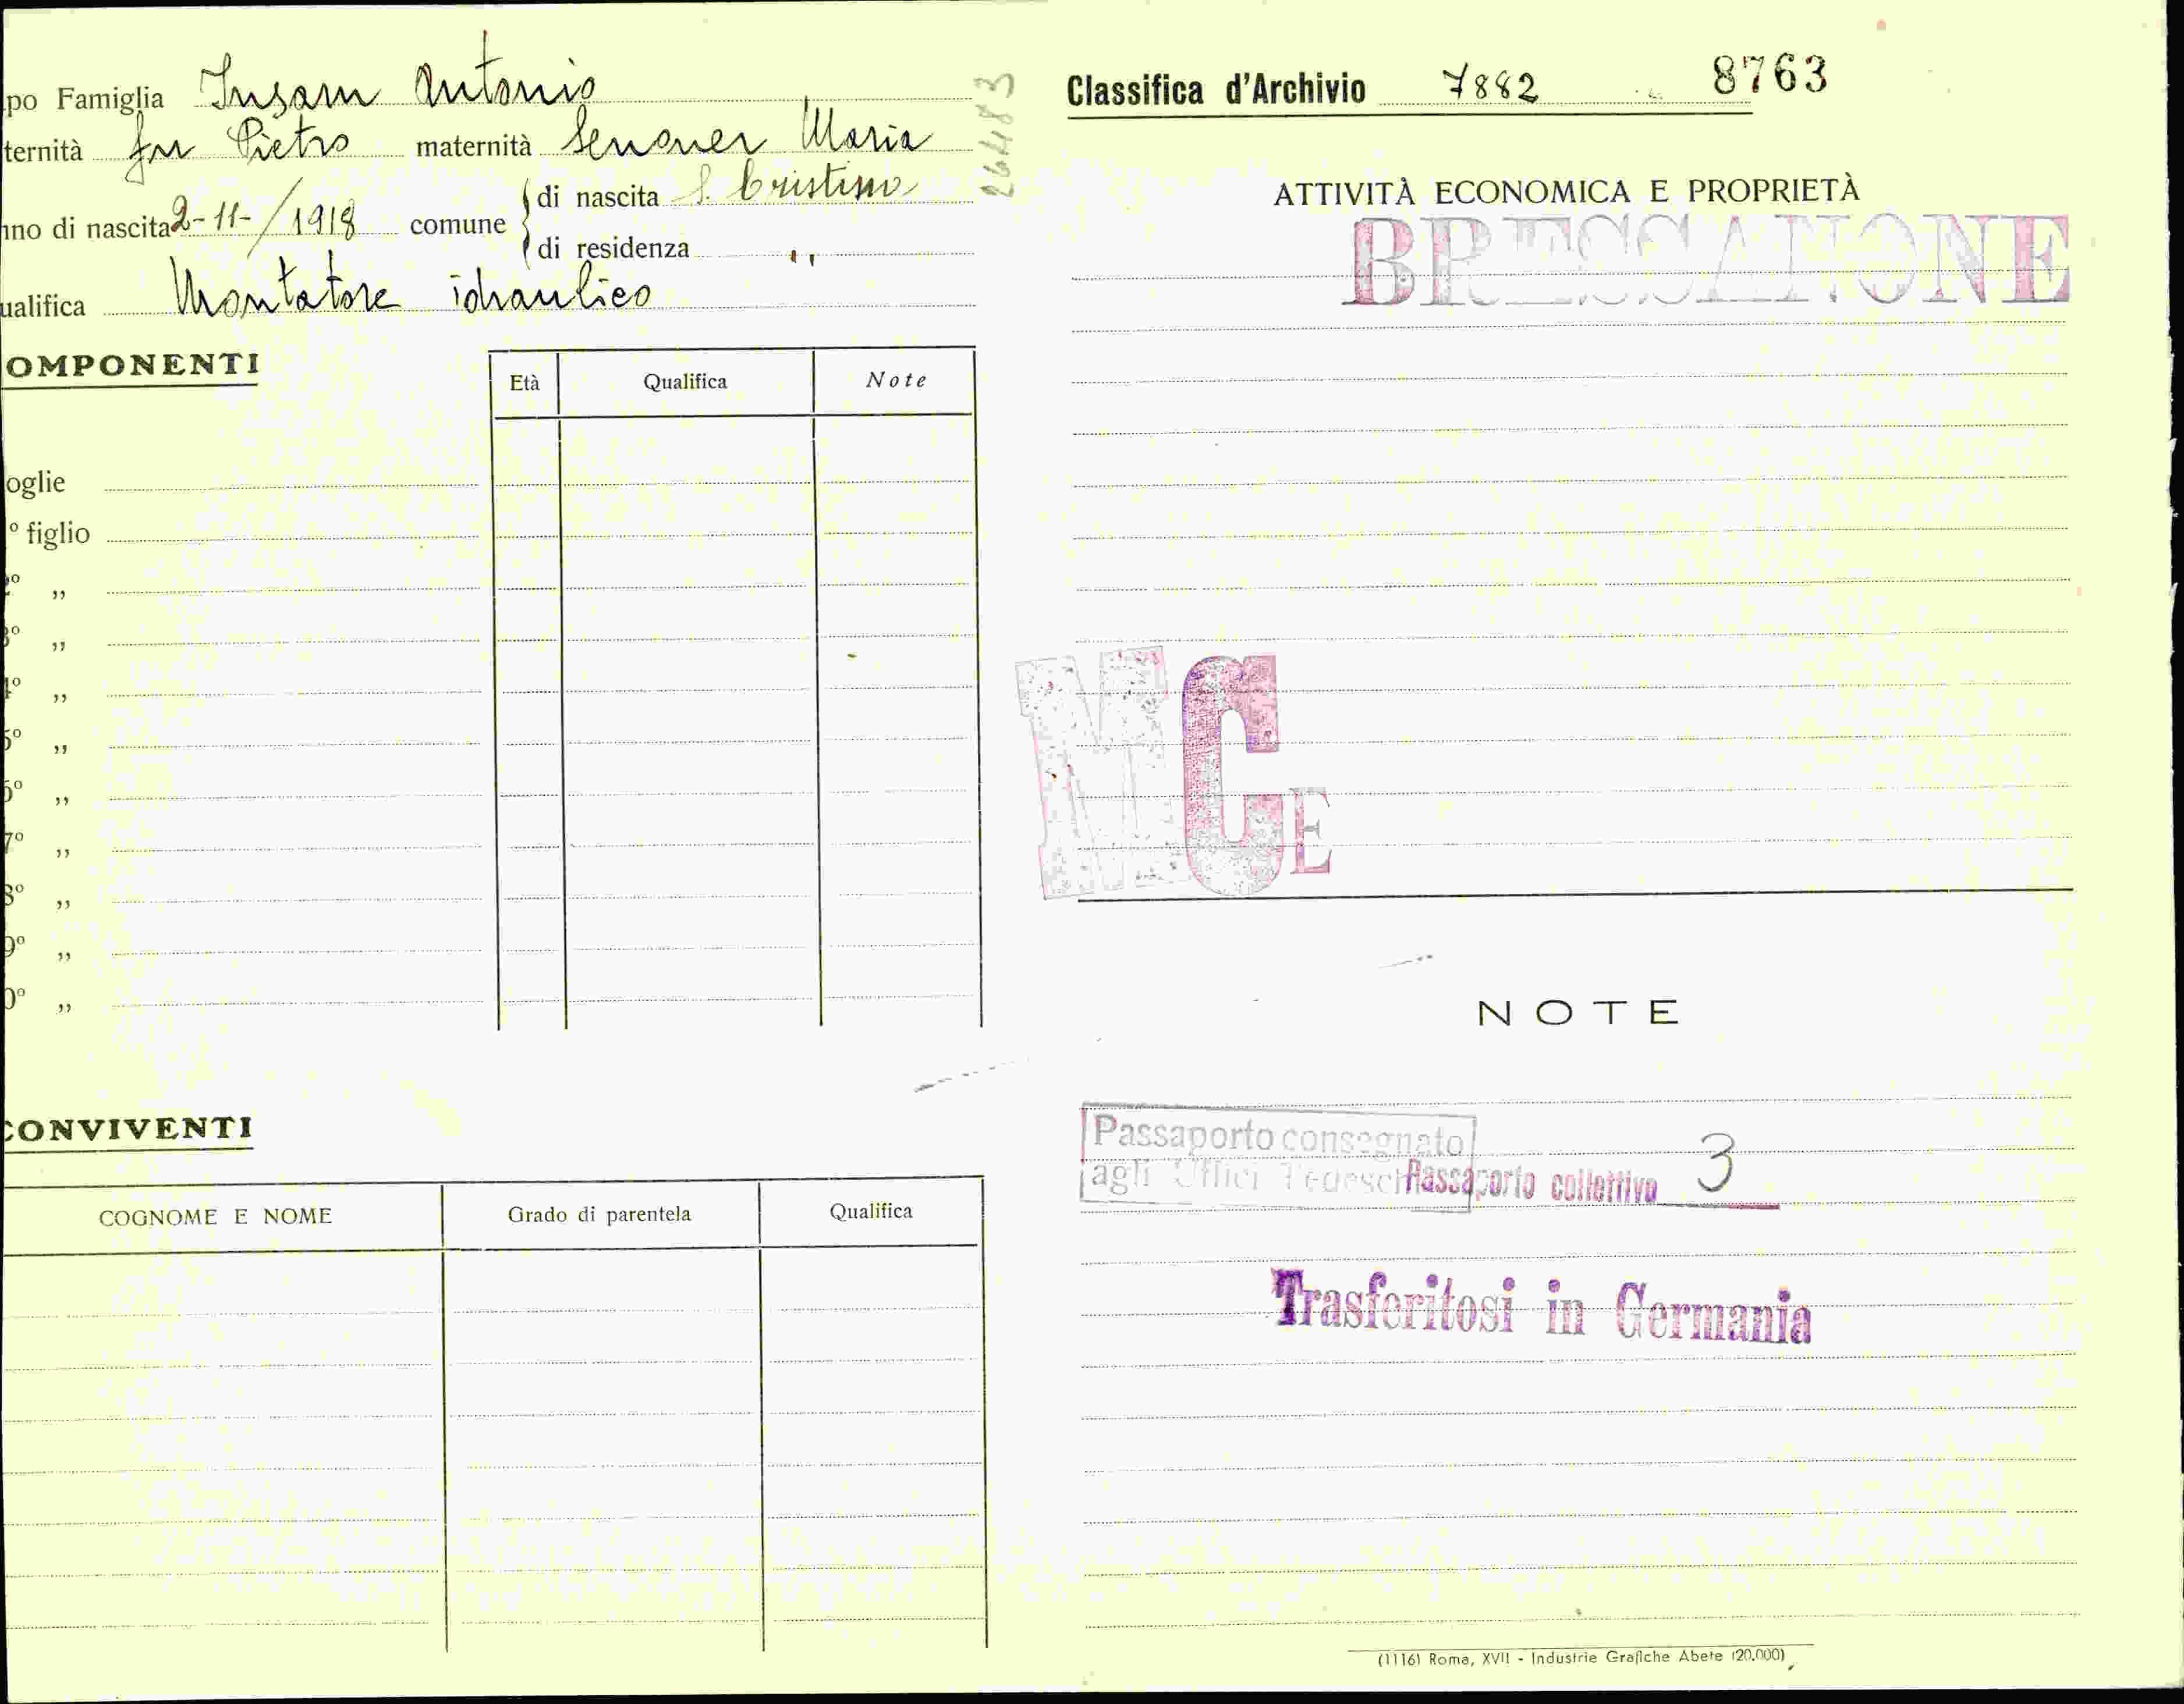 po Famiglia Insam Antonio
ternità fu Pietro maternità Senoner Maria
nno di nascita 2-11-/1918 comune di nascita S. Cristina
di residenza ,,
ualifica Montatore idraulico
26483
OMPONENTI
Età Qualifica Note
oglie
° figlio
° ,,
3° ,,
4° ,,
5° ,,
6° ,,
7° ,,
8° ,,
9° ,,
0° ,,
CONVIVENTI
COGNOME E NOME Grado di parentela Qualifica
Classifica d'Archivio 7882 8763
ATTIVITÀ ECONOMICA E PROPRIETÀ
BRESSANONE
NCE
NOTE
Passaporto consegnato
agli Uffici Tedeschi
Passaporto collettivo 3
Trasferitosi in Germania
(1116) Roma, XVII - Industrie Grafiche Abete (20.000)